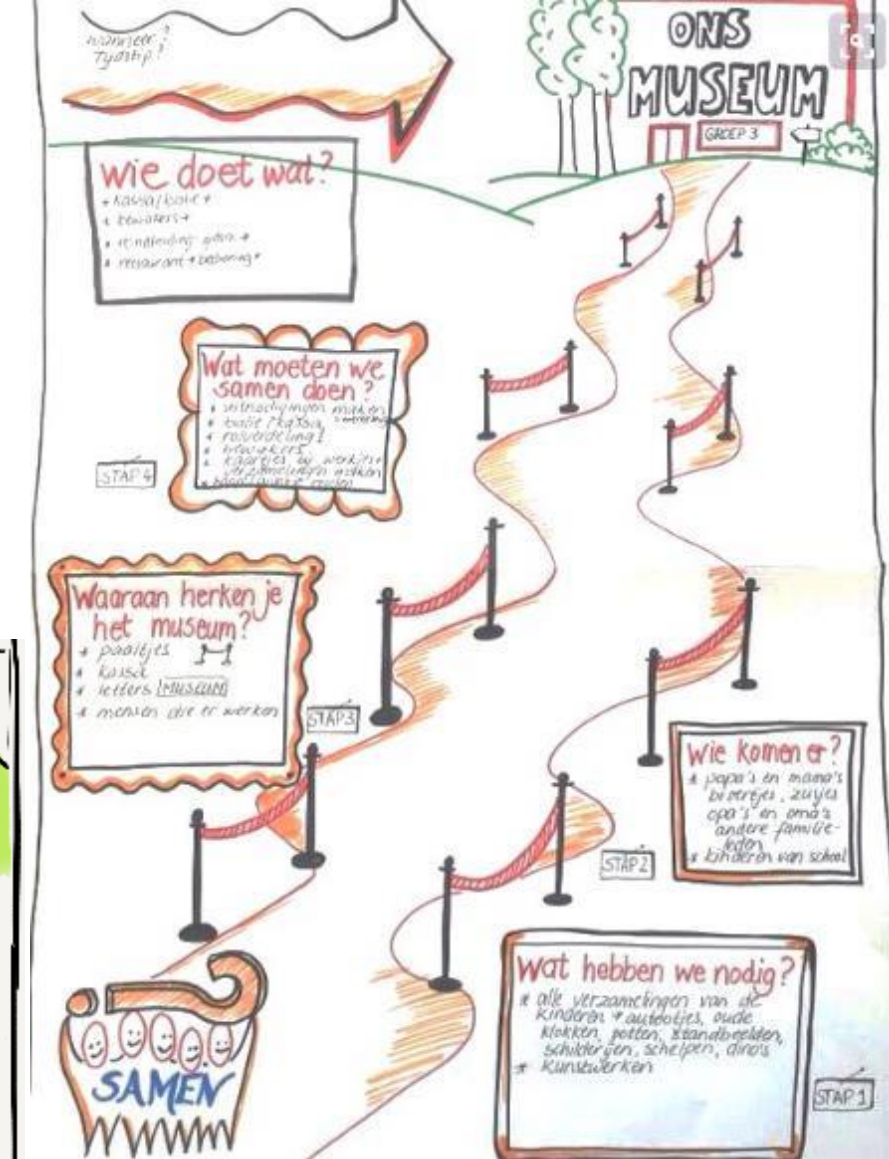 wanneer?
Tijdstip?
ONS
MUSEUM
GROEP 3
wie doet wat?
* kassa/balie *
* bewakers *
* rondleiding
* restaurant * bediening *
Wat moeten we
samen doen?
* uitnodigingen maken
* balie / kassa
* rolverdeling!
* bewakers
* kaartjes bij werkjes +
verzamelingen maken
STAP 4
Waaraan herken je
het museum?
* paaltjes
* kassa
* letters MUSEUM
* mensen die er werken
STAP 3
Wie komen er?
* papa's en mama's
broertjes, zusjes
opa's en oma's
andere familie-
leden
* kinderen van school
STAP 2
Wat hebben we nodig?
* alle verzamelingen van de
kinderen * autootjes, oude
klokken, potten, standbeelden,
schilderijen, schelpen, dino's
* Kunstwerken
STAP 1
SAMEN